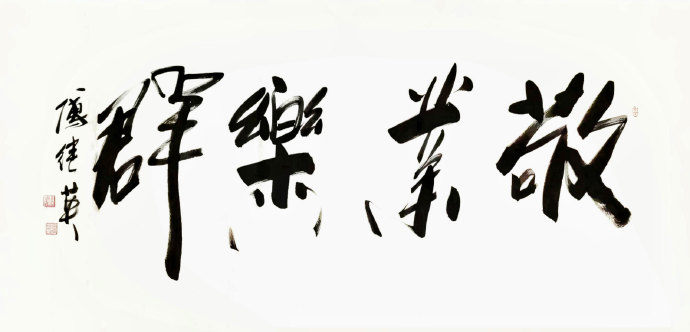 敬業樂群